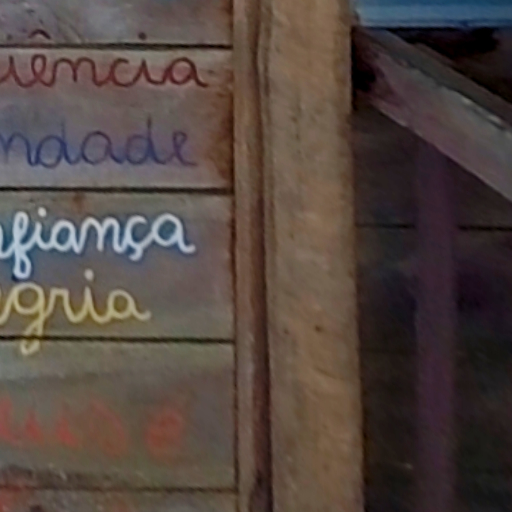 iência
ndade
nfiança
egria